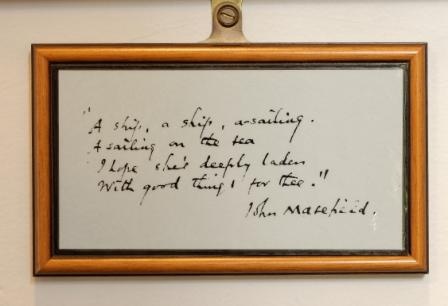 "A ship, a ship, a-sailing.
A sailing on the sea
I hope she's deeply laden
With good things for thee."
John Masefield.